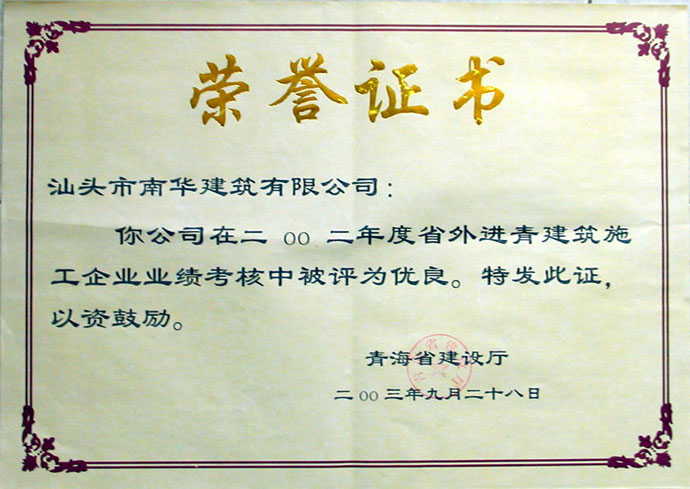 荣誉证书
汕头市南华建筑有限公司：
你公司在二00二年度省外进青建筑施
工企业业绩考核中被评为优良。特发此证，
以资鼓励。
青海省建设厅
二00三年九月二十八日